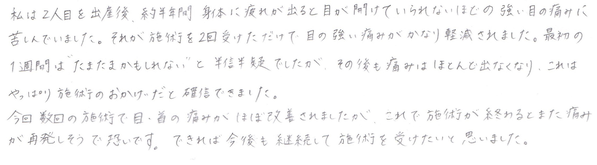 私は2人目を出産後、約半年間 身体に疲れが出ると目が開けていられないほどの強い目の痛みに
苦しんでいました。それが施術を2回受けただけで目の強い痛みがかなり軽減されました。最初の
1週間は"たまたまかもしれない"と半信半疑でしたが、その後も痛みはほとんど出なくなり、これは
やっぱり施術のおかげだと確信できました。
今回数回の施術で目・首の痛みがほぼ改善されましたが、これで施術が終わるとまた痛み
が再発しそうで恐いです。できれば今後も継続して施術を受けたいと思いました。